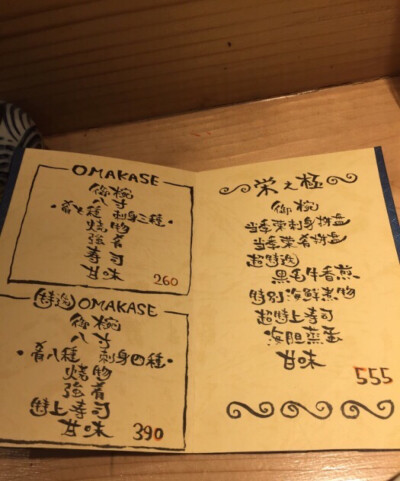 OMAKASE
御椀
八寸
・肴七種 刺身三種・
焼物
強肴
寿司
甘味
260
特選 OMAKASE
御椀
八寸
・肴八種 刺身四種・
焼物
強肴
特上寿司
甘味 390
栄之極
御椀
当季栄刺身拼盘
当季栄肴拼盘
超特选
黒毛牛香煎
特别海鮮煮物
超特上寿司
海胆蒸蛋
甘味
555